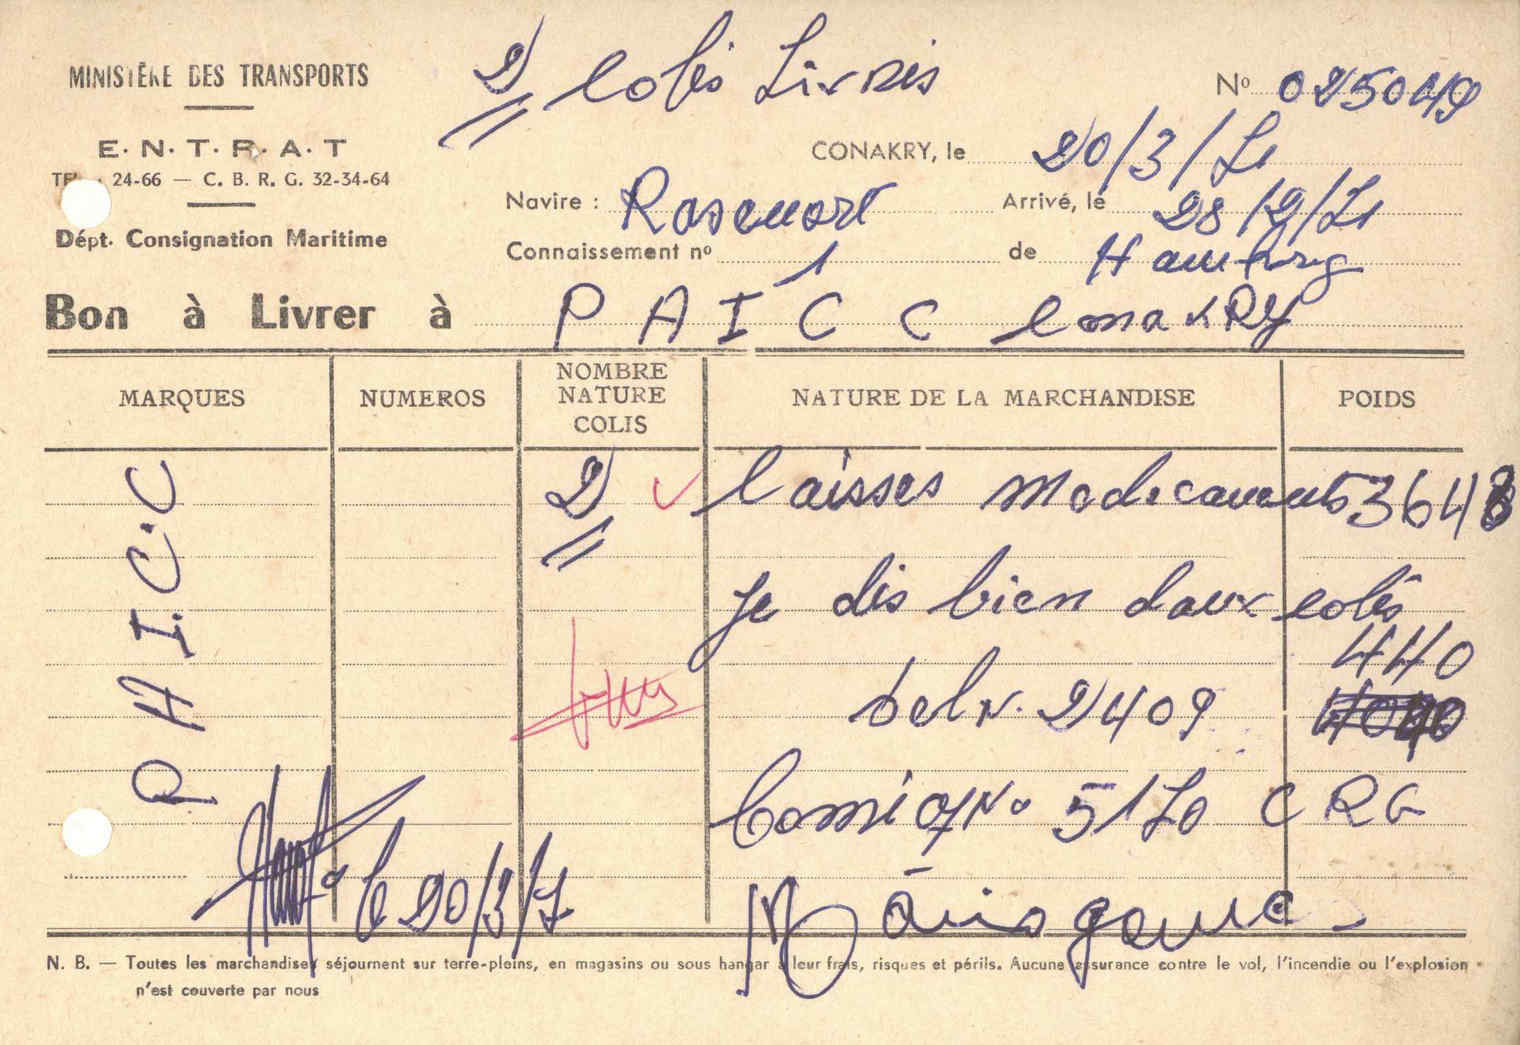 MINISTÈRE DES TRANSPORTS
2 Colis Livrés
Nº 025049
E. N. T. R. A. T
CONAKRY, le 20/3/71
24-66 — C. B. R. G. 32-34-64
Navire :
Arrivé, le 28/2/71
Dépt. Consignation Maritime
Connaissement nº 1 de Hamburg
Bon à Livrer à P A I C C ConakRY
MARQUES NUMEROS NOMBRE NATURE COLIS NATURE DE LA MARCHANDISE POIDS
P A I. C. C
2 Caisses Medicaments 3648
Je dis bien deux colis
440
2409
Camion Nº 5170 C R G
le 20/3/7
N. B. — Toutes les marchandises séjournent sur terre-pleins, en magasins ou sous hangar à leur frais, risques et périls. Aucune assurance contre le vol, l'incendie ou l'explosion
n'est couverte par nous